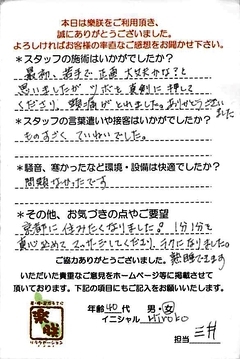 本日は樂朕をご利用頂き、
誠にありがとうございました。
よろしければお客様の率直なご感想をお聞かせ下さい。
*スタッフの施術はいかがでしたか?
最初、若手で正直大丈夫かな?と
思いましたが ツボを真剣に押して
くださり、頭痛がとれました。ありがとうございました
*スタッフの言葉遣いや接客はいかがでしたか?
ものすごく ていねいでした。
*騒音、寒かったなど環境・設備は快適でしたか?
問題なかったです
*その他、お気づきの点やご要望
京都に住みたくなりました。1分1分を
真心込めて マッサージしてくださり、ラクになりました。
熟睡できます
ご協力ありがとうございました。
いただいた貴重なご意見をホームページ等に掲載させて
頂いております。下記の項目にもご記入をお願いいたします。
年齢 40代 男・女
イニシャル Hiroko
担当 三井